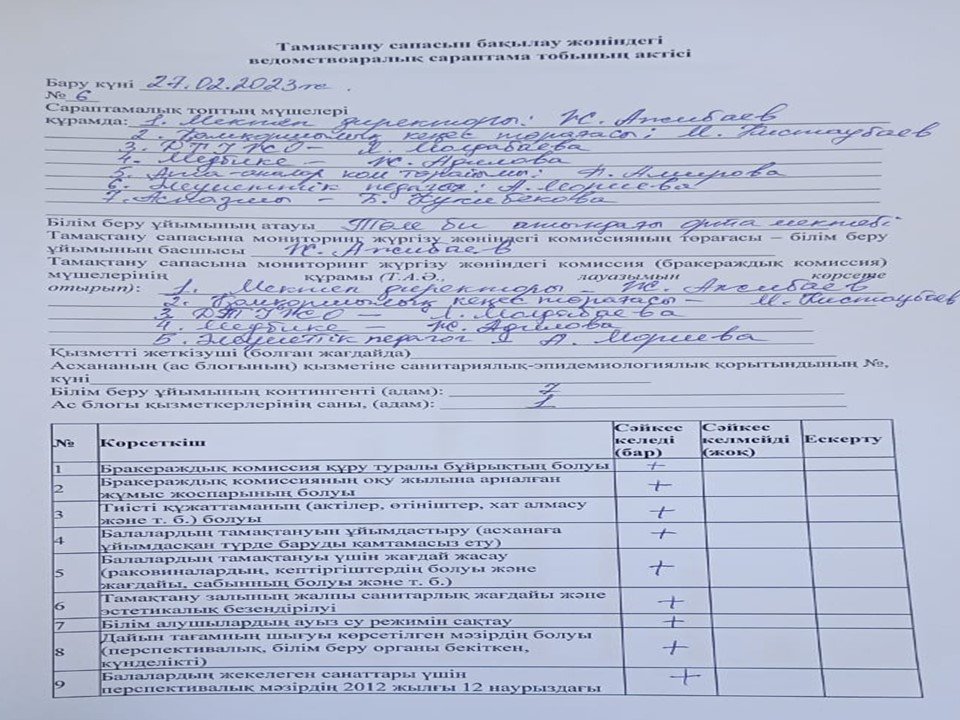 Тамақтану сапасын бақылау жөніндегі
ведомствоаралық сараптама тобының актісі
Бару күні 27.02.2023ж.
№ 6
Сараптамалық топтың мүшелері
құрамда: 1. Мектеп директоры: Ж. Аксибаев
2. Қамқоршылық кеңес төрағасы: М. Кистаубаев
3. ДТІЖО – Л. Молдабаева
4. Медбике – Ж. Адилова
5. Ата-аналар ком төрайымы: А. Амирова
6. Әлеуметтік педагог: А. Мориева
7. Аспазшы – Б. Кужибекова
Білім беру ұйымының атауы Төле би атындағы орта мектебі
Тамақтану сапасына мониторинг жүргізу жөніндегі комиссияның төрағасы – білім беру
ұйымының басшысы Ж. Аксибаев
Тамақтану сапасына мониторинг жүргізу жөніндегі комиссия (бракераждық комиссия)
мүшелерінің құрамы (Т.А.Ә., лауазымын көрсете
отырып): 1. Мектеп директоры – Ж. Аксибаев
2. Қамқоршылық кеңес төрағасы – М. Кистаубаев
3 ДТІЖО – Л. Молдабаева
4. Медбике – Ж. Адилова
5. Әлеуметік педагог А. Мориева
Қызметті жеткізуші (болған жағдайда)
Асхананың (ас блогының) қызметіне санитариялық-эпидемиологиялық қорытындының №,
күні
Білім беру ұйымының контингенті (адам): 7
Ас блогы қызметкерлерінің саны, (адам): 1
№ Көрсеткіш Сәйкес келеді (бар) Сәйкес келмейді (жоқ) Ескерту
1 Бракераждық комиссия құру туралы бұйрықтың болуы +
2 Бракераждық комиссияның оқу жылына арналған
жұмыс жоспарының болуы +
3 Тиісті құжаттаманың (актілер, өтініштер, хат алмасу
және т. б.) болуы +
4 Балалардың тамақтануын ұйымдастыру (асханаға
ұйымдасқан түрде баруды қамтамасыз ету) +
5 Балалардың тамақтануы үшін жағдай жасау
(раковиналардың, кептіргіштердің болуы және
жағдайы, сабынның болуы және т. б.) +
6 Тамақтану залының жалпы санитарлық жағдайы және
эстетикалық безендірілуі +
7 Білім алушылардың ауыз су режимін сақтау +
8 Дайын тағамның шығуы көрсетілген мәзірдің болуы
(перспективалық, білім беру органы бекіткен,
күнделікті) +
9 Балалардың жекелеген санаттары үшін
перспективалық мәзірдің 2012 жылғы 12 наурыздағы +